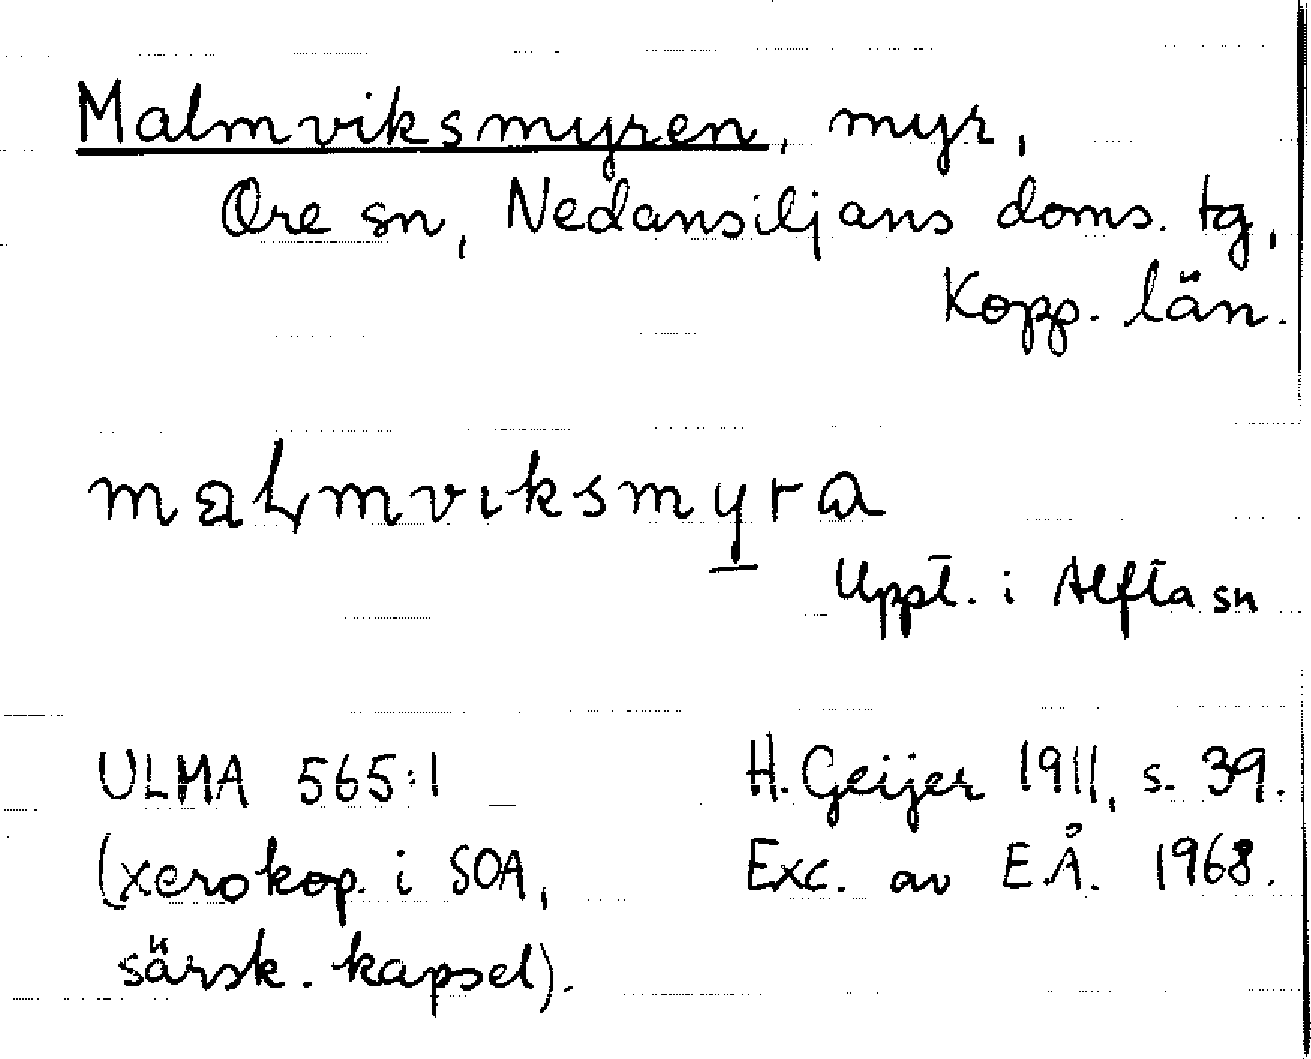 Malmviksmyren, myr,
Ore sn, Nedansiljans doms. tg,
Kopp. län.
malmviksmyra
Uppt. i Alfta sn
ULMA 565:1 H. Geijer 1911, s. 39.
(xerokop. i SOA, Exc. av E.Å. 1968.
särsk. kapsel).